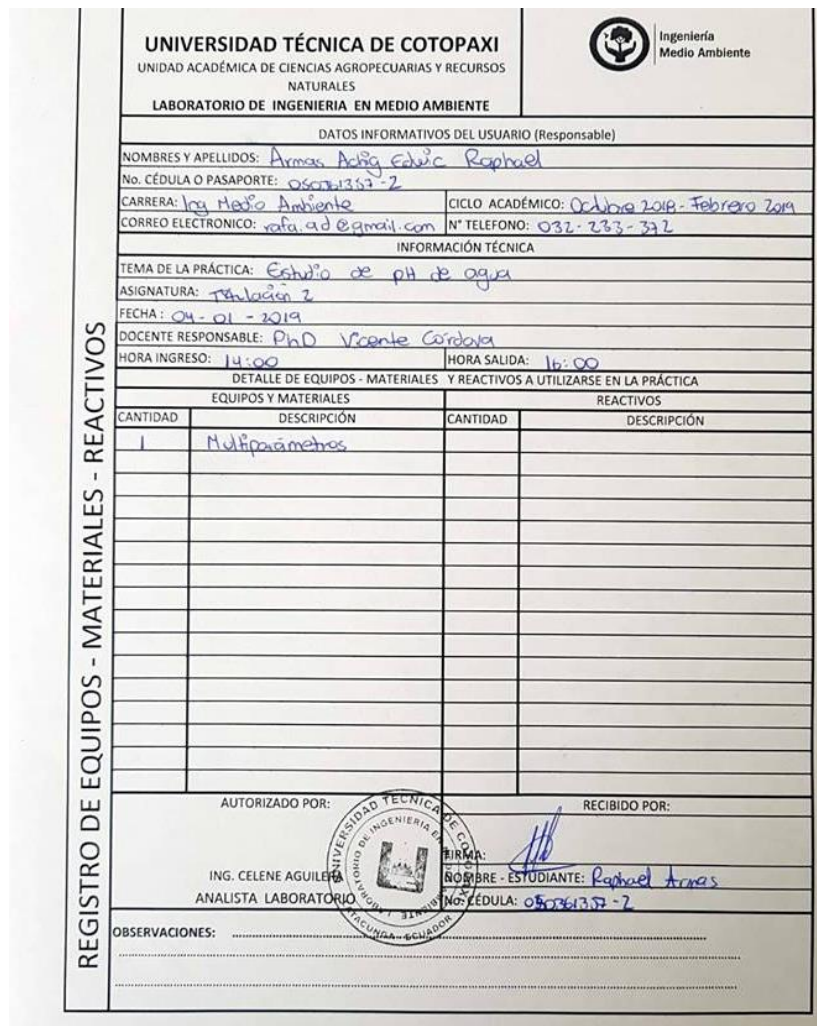 UNIVERSIDAD TÉCNICA DE COTOPAXI
UNIDAD ACADÉMICA DE CIENCIAS AGROPECUARIAS Y RECURSOS
NATURALES
LABORATORIO DE INGENIERIA EN MEDIO AMBIENTE
Ingeniería
Medio Ambiente
DATOS INFORMATIVOS DEL USUARIO (Responsable)
NOMBRES Y APELLIDOS: Armas Achig Edwic Raphael
No. CÉDULA O PASAPORTE: 050361357-2
CARRERA: Ing Medio Ambiente CICLO ACADÉMICO: Octubre 2018 - Febrero 2019
CORREO ELECTRONICO: rafa.ad@gmail.com N° TELEFONO: 032-233-372
INFORMACIÓN TÉCNICA
TEMA DE LA PRÁCTICA: Estudio de pH de agua
ASIGNATURA: Titulación 2
FECHA: 04-01-2019
DOCENTE RESPONSABLE: PhD Vicente Córdova
HORA INGRESO: 14:00 HORA SALIDA: 16:00
DETALLE DE EQUIPOS - MATERIALES Y REACTIVOS A UTILIZARSE EN LA PRÁCTICA
EQUIPOS Y MATERIALES REACTIVOS
CANTIDAD DESCRIPCIÓN CANTIDAD DESCRIPCIÓN
1 Multiparámetros
AUTORIZADO POR: RECIBIDO POR:
UNIVERSIDAD TECNICA DE COTOPAXI
LABORATORIO DE INGENIERIA EN MEDIO AMBIENTE
LATACUNGA - ECUADOR
FIRMA:
ING. CELENE AGUILERA NOMBRE - ESTUDIANTE: Raphael Armas
ANALISTA LABORATORIO No. CÉDULA: 050361357-2
OBSERVACIONES:
REGISTRO DE EQUIPOS - MATERIALES - REACTIVOS